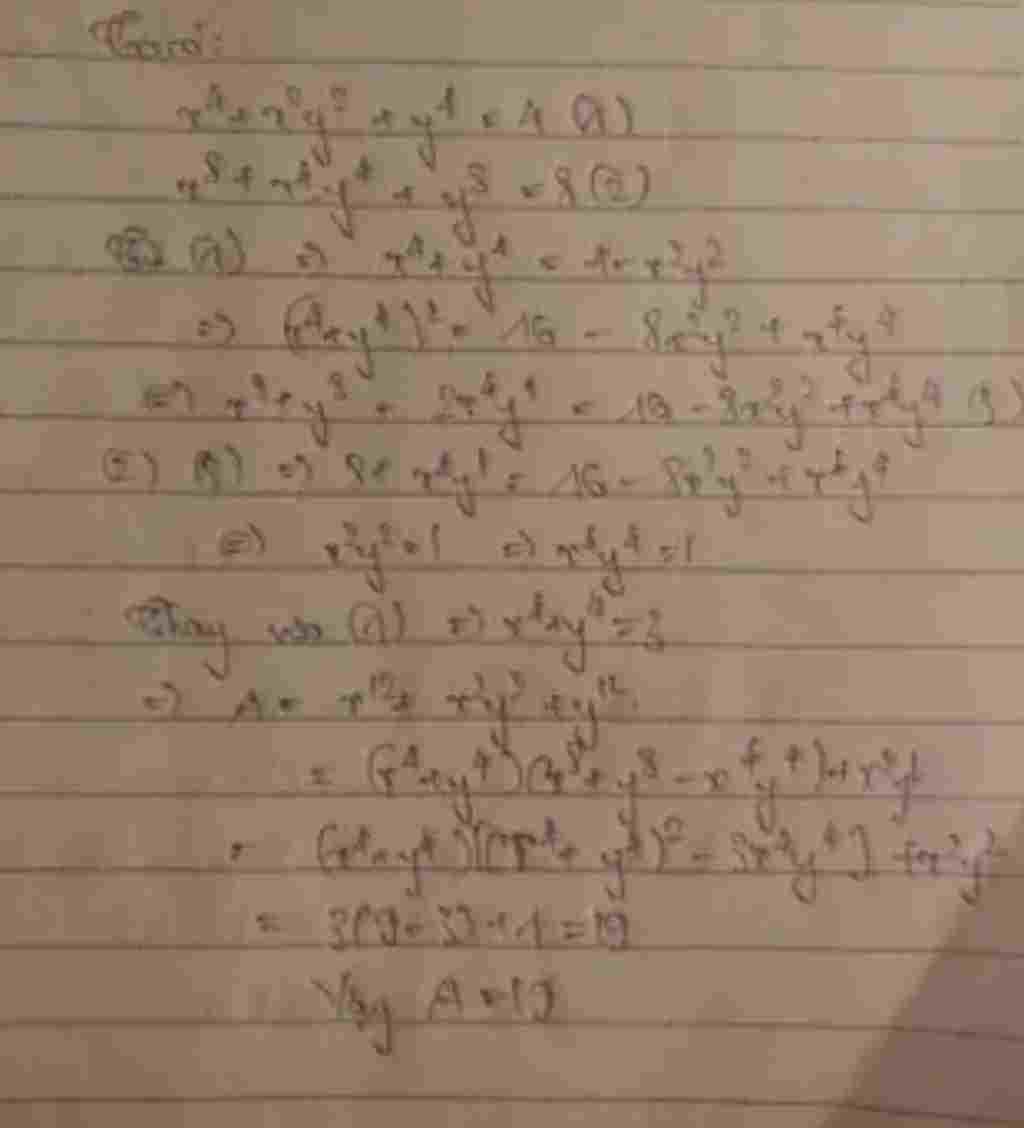 x⁴ + x²y² + y⁴ = 4 (1)
x⁸ + x⁴y⁴ + y⁸ = 8 (2)
Từ (1) => x⁴ + y⁴ = 4 - x²y²
=> (x⁴ + y⁴)² = 16 - 8x²y² + x⁴y⁴
=> x⁸ + y⁸ + 2x⁴y⁴ = 16 - 8x²y² + x⁴y⁴ (3)
(2) (3) => 8 + x⁴y⁴ = 16 - 8x²y² + x⁴y⁴
=> x²y² = 1 => x⁴y⁴ = 1
Thay vào (1) => x⁴ + y⁴ = 3
=> A = x¹² + x²y² + y¹²
= (x⁴ + y⁴)(x⁸ + y⁸ - x⁴y⁴) + x²y²
= (x⁴ + y⁴)[(x⁴ + y⁴)² - 3x⁴y⁴] + x²y²
= 3(9 - 3) + 1 = 19
Vậy A = 19